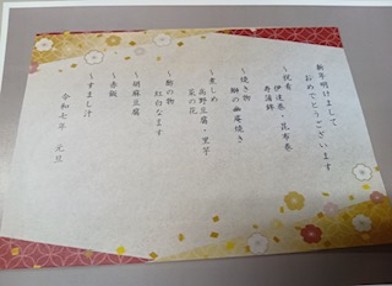 新年明けまして
おめでとうございます
～祝肴
伊達巻・昆布巻
寿蒲鉾
～焼き物
鰤の幽庵焼き
～煮しめ
高野豆腐・里芋
菜の花
～酢の物
紅白なます
～胡麻豆腐
～赤飯
～すまし汁
令和七年 元旦